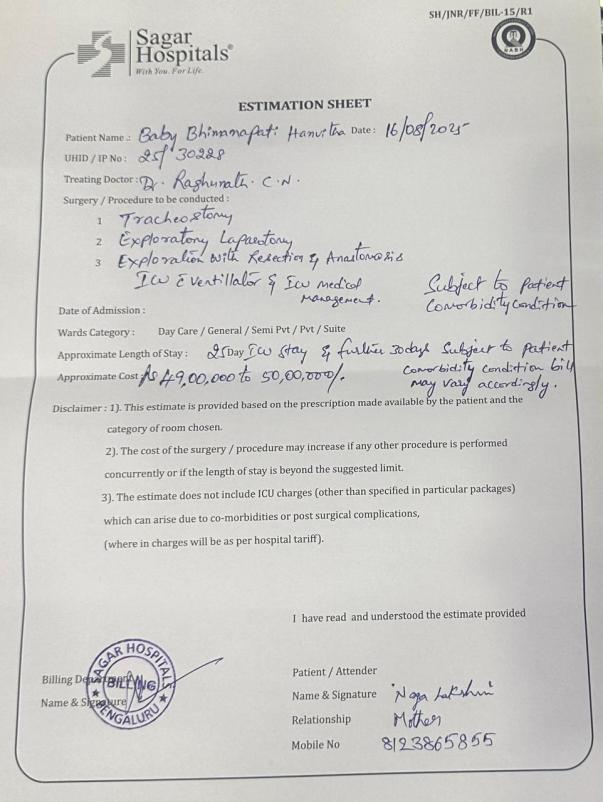 SH/JNR/FF/BIL-15/R1
Sagar
Hospitals®
With You. For Life.
NABH
ESTIMATION SHEET
Patient Name : Baby Bhimanapati Hanvitha Date : 16/08/2025
UHID / IP No : 25/30228
Treating Doctor : Dr. Raghunath. C.N.
Surgery / Procedure to be conducted :
1 Tracheostomy
2 Exploratory Laparotomy
3 Exploration with Resection & Anastomosis
ICU c ventillator & ICU medical
management.
Subject to patient
Comorbidity condition
Date of Admission :
Wards Category : Day Care / General / Semi Pvt / Pvt / Suite
Approximate Length of Stay : 25Day ICU stay & further 30days Subject to patient
Comorbidity condition bill
may vary accordingly.
Approximate Cost Rs 49,00,000 to 50,00,000/.
Disclaimer : 1). This estimate is provided based on the prescription made available by the patient and the
category of room chosen.
2). The cost of the surgery / procedure may increase if any other procedure is performed
concurrently or if the length of stay is beyond the suggested limit.
3). The estimate does not include ICU charges (other than specified in particular packages)
which can arise due to co-morbidities or post surgical complications,
(where in charges will be as per hospital tariff).
I have read and understood the estimate provided
SAGAR HOSPITALS
BILLING
BENGALURU
Billing Department
Name & Signature
Patient / Attender
Name & Signature Naga Lakshmi
Relationship Mother
Mobile No 8123865855